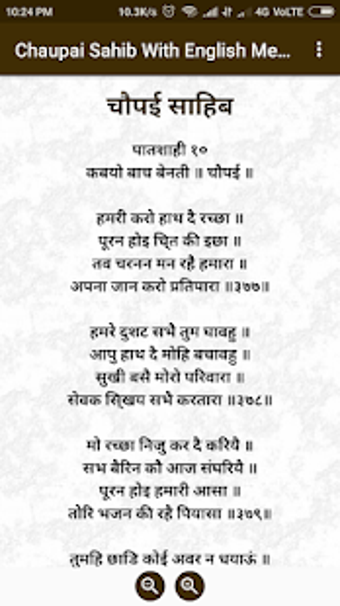 10:24 PM 10.3K/s 4G VoLTE
Chaupai Sahib With English Me...
चौपई साहिब
पातशाही १०
कबयो बाच बेनती ॥ चौपई ॥
हमरी करो हाथ दै रच्छा ॥
पूरन होइ चि्त की इछा ॥
तव चरनन मन रहै हमारा ॥
अपना जान करो प्रतिपारा ॥३७७॥
हमरे दुशट सभै तुम घावहु ॥
आपु हाथ दै मोहि बचावहु ॥
सुखी बसै मोरो परिवारा ॥
सेवक सि्खय सभै करतारा ॥३७८॥
मो रच्छा निजु कर दै करियै ॥
सभ बैरिन कौ आज संघरियै ॥
पूरन होइ हमारी आसा ॥
तोरि भजन की रहै पियासा ॥३७९॥
तुमहि छाडि कोई अवर न धयाऊं ॥